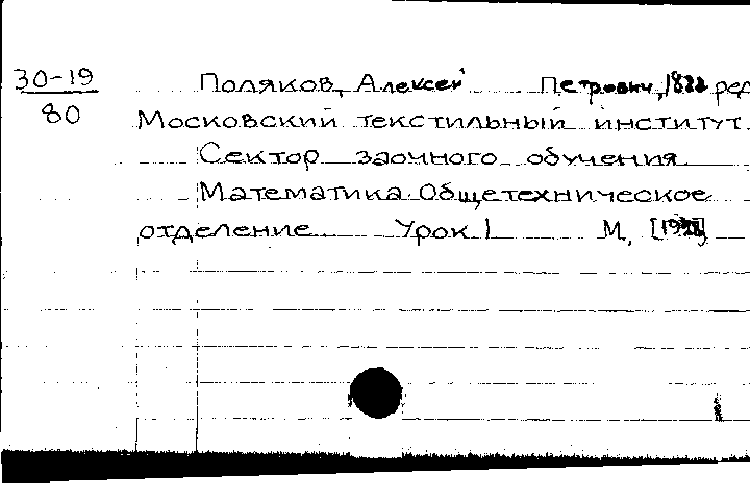 30-19 Поляков, Алексей Петрович, ред
80 Московский текстильный институт.
Сектор заочного обучения
Математика. Общетехническое
отделение Урок 1 М,